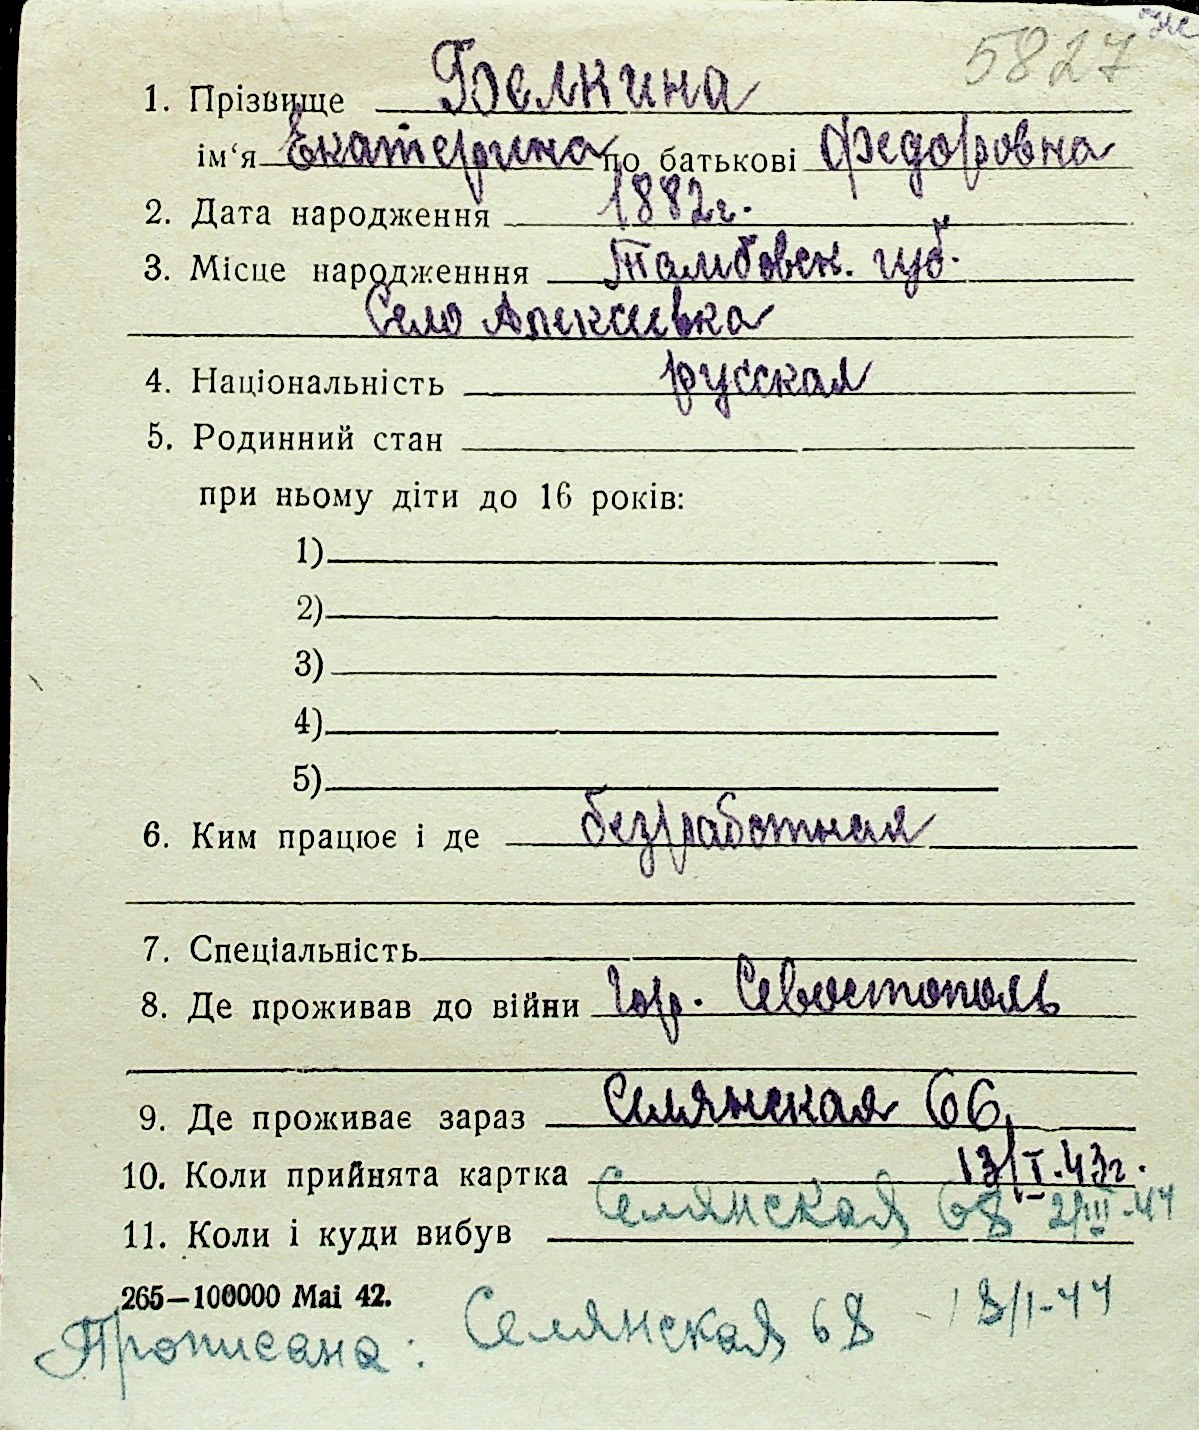 5827
1. Прізвище Белкина
ім‘я Екатерина по батькові Федоровна
2. Дата народження 1882г.
3. Місце народженння Тамбовск. губ.
Село Алексеевка
4. Національність русская
5. Родинний стан
при ньому діти до 16 років:
1)
2)
3)
4)
5)
6. Ким працює і де безработная
7. Спеціальність
8. Де проживав до війни Гор. Севостополь
9. Де проживає зараз Селянская 66
10. Коли прийнята картка 13/I-43г.
Селянская 68 2/III-44
11. Коли і куди вибув
265—100000 Mai 42.
Прописана: Селянская 68 - 18/I-44